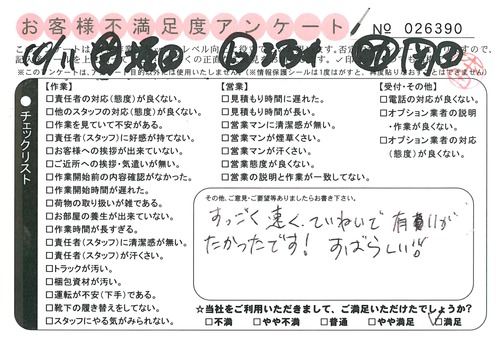 お客様不満足度アンケート
№ 026390
※このアンケートは、アンケート目的以外には使用いたしません。(※情報保護シールは1度はがすと、再度貼りなおすことはできません)
チェックリスト
【作業】
□責任者の対応(態度)が良くない。
□他のスタッフの対応(態度)が良くない。
□作業を見ていて不安がある。
□責任者(スタッフ)に好感が持てない。
□お客様への挨拶が出来ていない。
□ご近所への挨拶・気遣いが無い。
□作業開始前の内容確認がなかった。
□作業開始時間が遅れた。
□荷物の取り扱いが雑である。
□お部屋の養生が出来ていない。
□作業時間が長すぎる。
□責任者(スタッフ)に清潔感が無い。
□責任者(スタッフ)が汗くさい。
□トラックが汚い。
□梱包資材が汚い。
□運転が不安(下手)である。
□靴下の履き替えをしてない。
□スタッフにやる気がみられない。
【営業】
□見積もり時間に遅れた。
□見積もり時間が長い。
□営業マンに清潔感が無い。
□営業マンが煙草くさい。
□営業マンが汗くさい。
□営業態度が良くない。
□営業の説明と作業が一致してない。
【受付・その他】
□電話の対応が良くない。
□オプション業者の説明
・作業が良くない。
□オプション業者の対応
(態度)が良くない。
その他、ご意見・ご要望等ありましたらお書き下さい。
すっごく速く、ていねいで 有りが
たかったです! すばらしい!!
☆当社をご利用いただきまして、ご満足いただけたでしょうか?
□不満 □やや不満 □普通 □やや満足 □満足